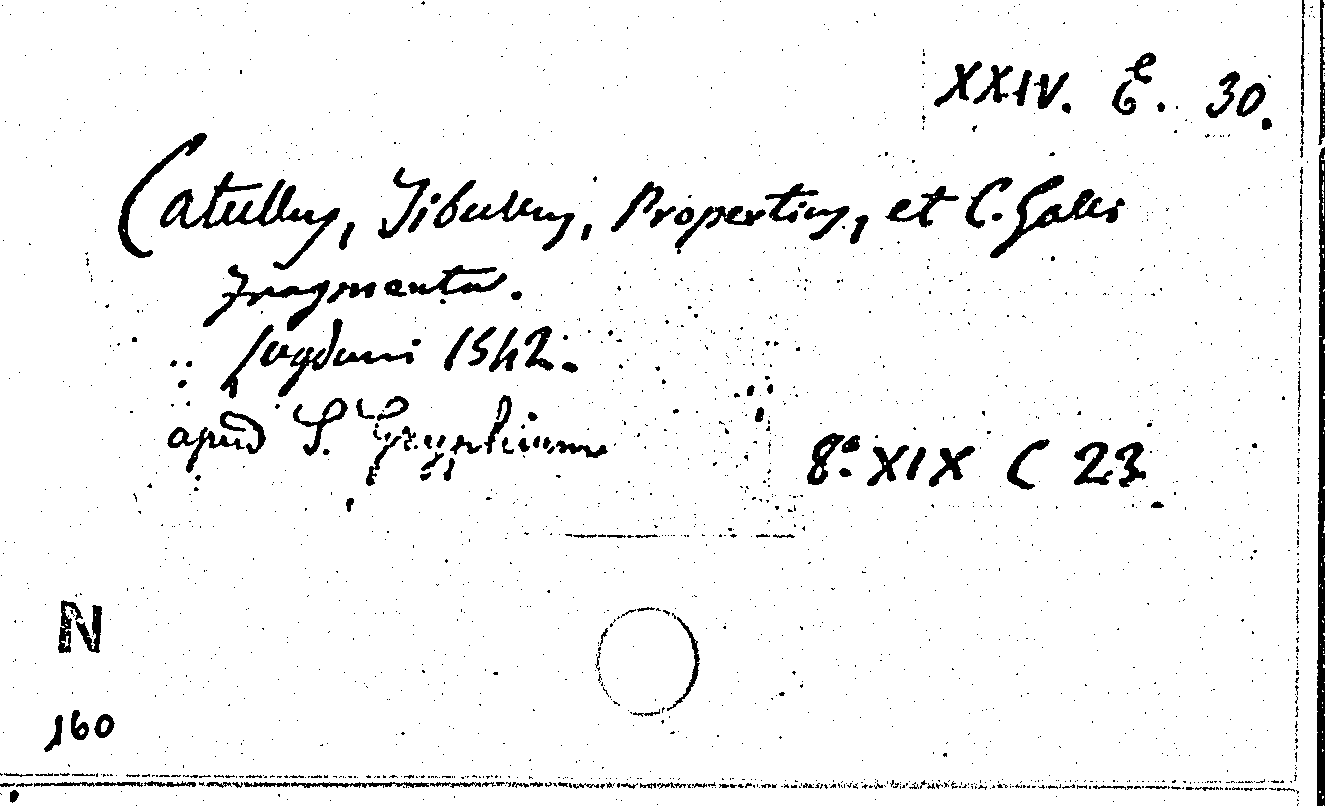 XXIV. E. 30.
Catullus, Tibullus, Propertius, et C. Galli
fragmenta.
lugduni 1542.
apud S. Gryphium
8º XIX C 23
N
160